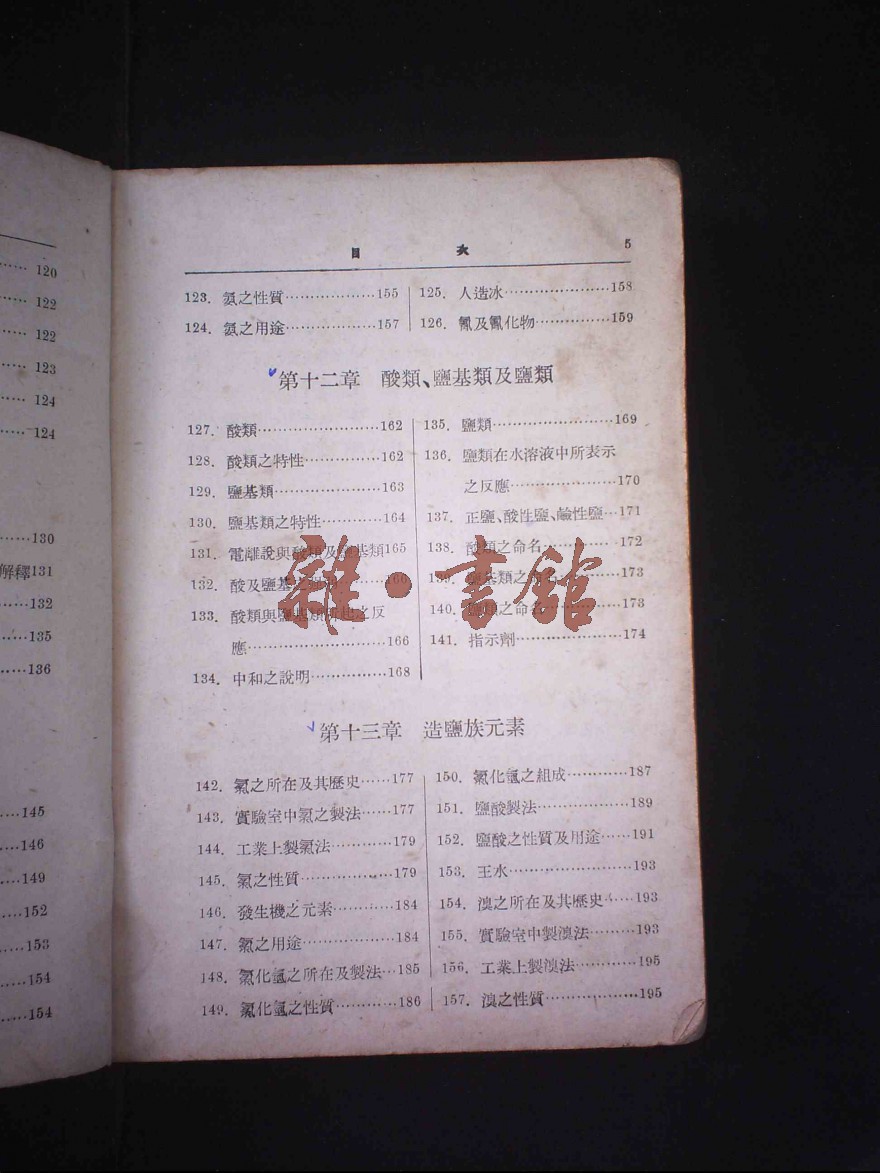 120
122
122
123
124
124
130
解釋131
132
135
136
145
146
149
152
153
154
154
目 次 5
123. 氨之性質………………155
124. 氨之用途………………157
125. 人造冰…………………158
126. 氰及氰化物……………159
第十二章 酸類、鹽基類及鹽類
127. 酸類……………………162
128. 酸類之特性……………162
129. 鹽基類…………………163
130. 鹽基類之特性…………164
131. 電離說與酸類及鹽基類165
132. 酸及鹽基之強弱………166
133. 酸類與鹽基類所起之反
應………………………166
134. 中和之說明……………168
135. 鹽類……………………169
136. 鹽類在水溶液中所表示
之反應…………………170
137. 正鹽、酸性鹽、鹼性鹽…171
138. 酸類之命名……………172
139. 鹽基類之命名…………173
140. 鹽類之命名……………173
141. 指示劑…………………174
雜·書館
第十三章 造鹽族元素
142. 氯之所在及其歷史……177
143. 實驗室中氯之製法……177
144. 工業上製氯法…………179
145. 氯之性質………………179
146. 發生機之元素…………184
147. 氯之用途………………184
148. 氯化氫之所在及製法…185
149. 氯化氫之性質…………186
150. 氯化氫之組成…………187
151. 鹽酸製法………………189
152. 鹽酸之性質及用途……191
153. 王水……………………193
154. 溴之所在及其歷史……193
155. 實驗室中製溴法………193
156. 工業上製溴法…………195
157. 溴之性質………………195